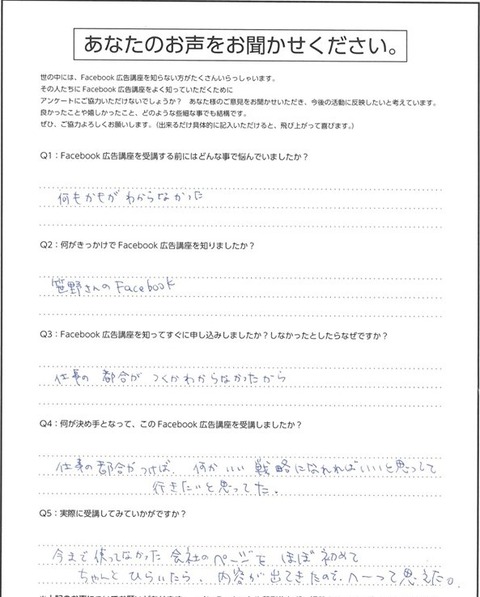 あなたのお声をお聞かせください。
世の中には、Facebook 広告講座を知らない方がたくさんいらっしゃいます。
その人たちに Facebook 広告講座をよく知っていただくために
アンケートにご協力いただけないでしょうか？ あなた様のご意見をお聞かせいただき、今後の活動に反映したいと考えています。
良かったことや嬉しかったこと、どのような些細な事でも結構です。
ぜひ、ご協力よろしくお願いします。（出来るだけ具体的に記入いただけると、飛び上がって喜びます。）
Q1：Facebook 広告講座を受講する前にはどんな事で悩んでいましたか？
何もかもがわからなかった
Q2：何がきっかけで Facebook 広告講座を知りましたか？
笹野さんのFacebook
Q3：Facebook 広告講座を知ってすぐに申し込みしましたか？しなかったとしたらなぜですか？
仕事の都合がつくかわからなかったから
Q4：何が決め手となって、この Facebook 広告講座を受講しましたか？
仕事の都合がつけば、何かいい戦略になれればいいと思ってて
行きたいと思ってた。
Q5：実際に受講してみていかがですか？
今まで使ってなかった会社のページを ほぼ初めて
ちゃんとひらいたら、内容が出てきたので、へーって思えた。